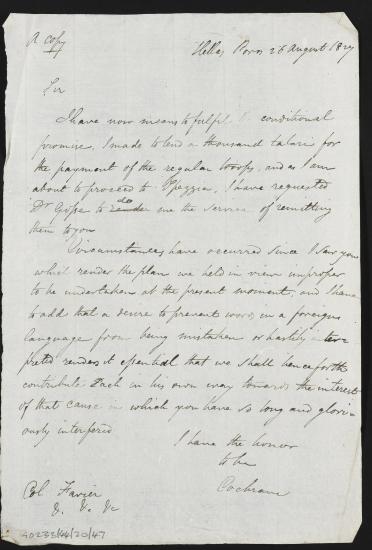 A Copy
Hellas, Poros 26 August 1827
Sir
I have now means to fulfil conditional
promise, I made to lend a thousand talari for
the payment of the regular troops, and as I am
about to proceed to Speggia, I have requested
Dr Gosse to render do me the service of remitting
them to you
Circumstances have occurred since I saw you
which render the plan we held in view improper
to be undertaken at the present moment, and I have
to add that a desire to prevent words in a foreign
language from being mistaken or hastily inter-
preted renders it essential that we shall henceforth
contribute Each in his own way towards the interest
of that cause in which you have so long and glori-
ously interfered
I have the honor
to be
Cochrane
Col Favier
&c &c &c
GD233/44/20/47